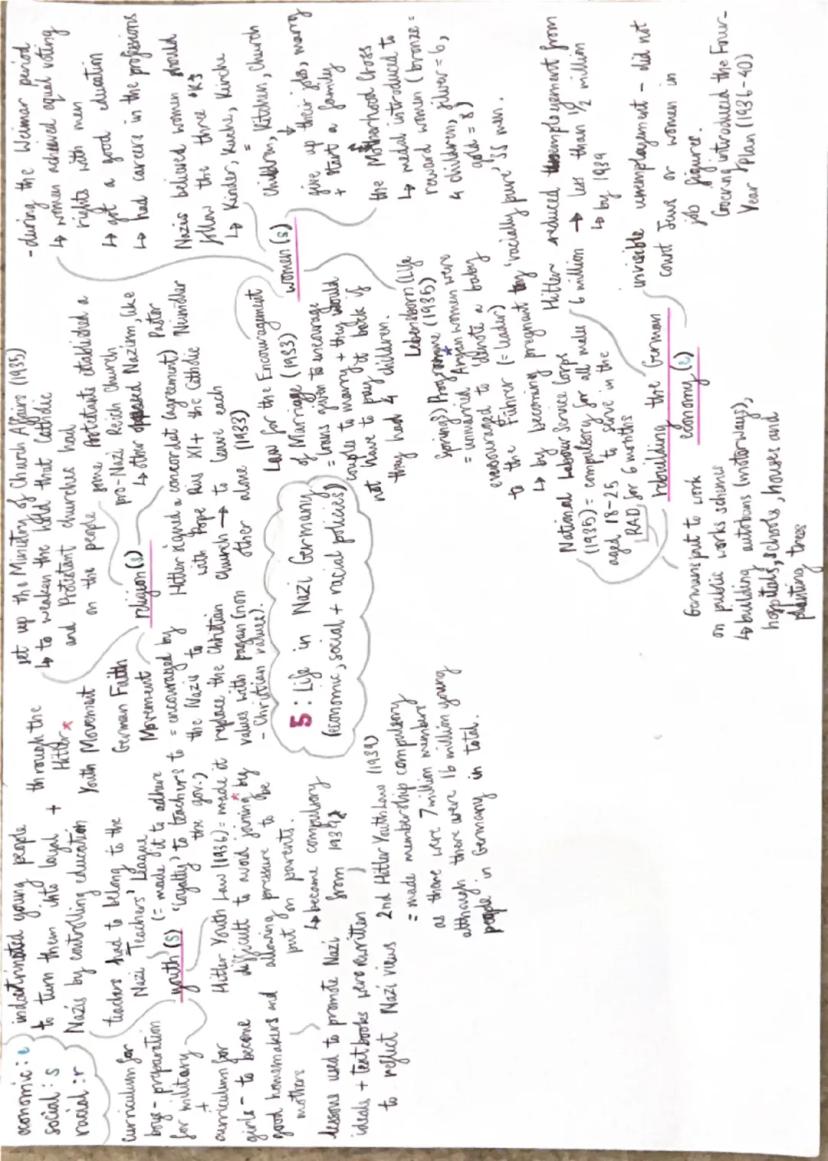 economic: e
social: s
racial: r
indoctrinated young people
to turn them into loyal +
Nazis by controlling education
through the
Hitler*
Youth Movement
teachers had to belong to the
Nazi Teachers' League
(= made it to adhere
'loyalty' to teachers to
the gov.)
youth (s)
curriculum for
boys - preparation
for military
+
curriculum for
girls - to become
good homemakers and
mothers
lessons used to promote Nazi
ideals + textbooks were rewritten
to reflect Nazi views
Hitler Youth Law (1936) = made it
difficult to avoid joining* by
allowing pressure to be
put on parents.
↳ became compulsory
from 1939
2nd Hitler Youth Law (1939)
= made membership compulsory
as there were 7 million members
although there were 16 million young
people in Germany in total.
set up the Ministry of Church Affairs (1935)
↳ to weaken the hold that Catholic
and Protestant churches had
on the people
religion (s)
some Protestants established a
pro-Nazi Reich Church
↳ other opposed Nazism, like
Pastor
Niemöller
German Faith
Movement
= encouraged by
the Nazis to
replace the Christian
values with pagan (non
-Christian values).
Hitler signed a concordat (agreement)
with Pope Pius XI + the Catholic
Church → to leave each
other alone (1933)
5: Life in Nazi Germany
(economic, social + racial policies)
-during the Weimar period
↳ women achieved equal voting
rights with men
↳ got a good education
↳ had careers in the professions
Nazis believed women should
follow the three 'K's
↳ Kinder, Kuche, Kirche
=
Children, Kitchen, Church
↓
give up their jobs, marry
+ start a family
women (s)
the Motherhood Cross
↳ medal introduced to
reward women (bronze =
4 children, silver = 6,
gold = 8)
Law for the Encouragement
of Marriage (1933)
= loans given to encourage
couples to marry + they would
not have to pay it back if
they had 4 children.
Lebensborn (Life
Springs) Programme (1935)
= unmarried Aryan women were
encouraged to 'donate a baby
to the Führer (= leader)
↳ by becoming pregnant by 'racially pure' SS men.
National Labour Service Corps
(1935) = compulsory for all males
aged 18-25 to serve in the
RAD for 6 months
rebuilding the German
economy (e)
Hitler reduced unemployment from
6 million → less than ½ million
↳ by 1939
invisible unemployment - did not
count Jews or women in
job figures.
Goering introduced the Four-
Year Plan (1936-40)
Germans put to work
on public works schemes
↳ building autobans (motorways),
hospitals, schools, houses and
planting trees